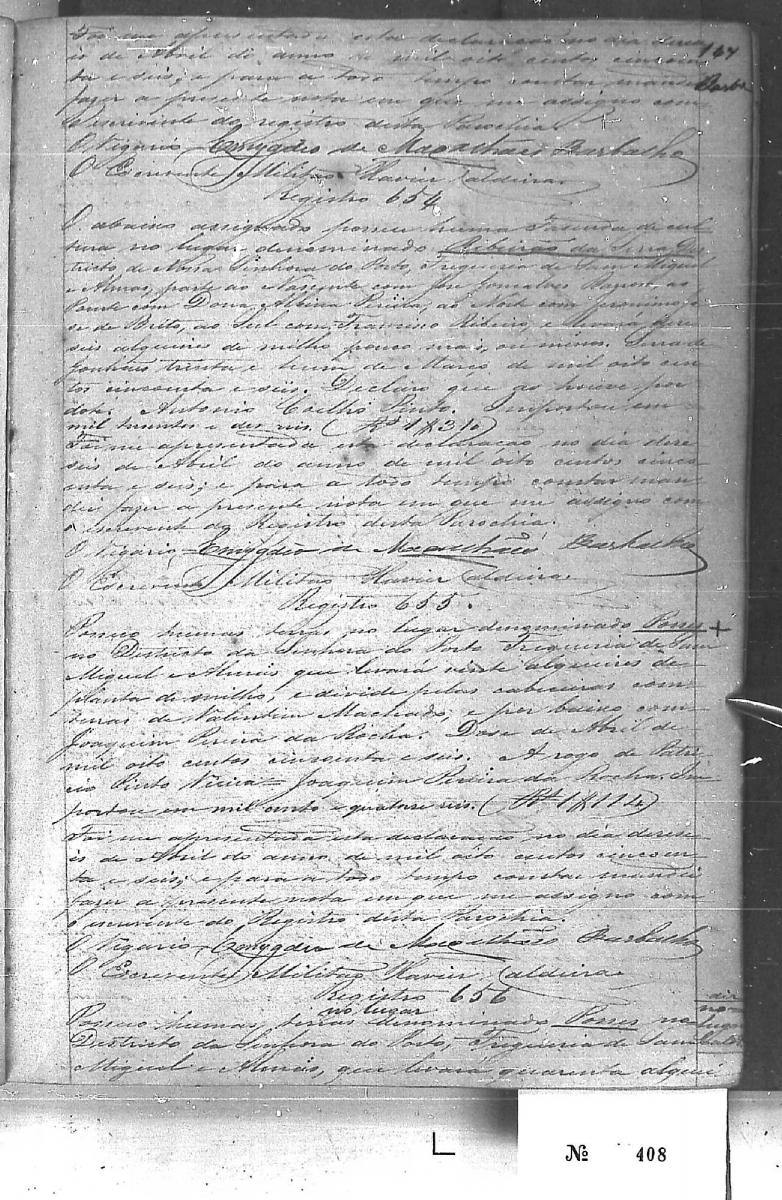 Foi me apresentada esta declaração no dia dezese-
is de Abril do anno de mil oito centos cincoen-
ta e seis; e para a todo tempo constar mandei
fazer a presente nota em que me assigno com
o escrivente do registro desta Parochia.
O Vigario Emygdio de Magalhães Barbalho
O Escrivente Militao Xavier Caldeira
Registro 654
O abaixo assignado possue huma Fazenda de cul-
tura no lugar denominado Ribeirão da Serra Des-
tricto de Nossa Senhora do Porto, Freguezia de Sam Miguel
e Almas, parte ao Nascente com José Gonsalves, ao
Poente com Dona Albina, ao Norte com Jeronimo
de Brito, ao Sul com Francisco Ribeiro, e levará deze-
seis alqueires de milho pouco mais, ou menos. Serra de
trinta e hum de Março de mil oito cen-
tos cincoenta e seis. Declaro que ao houve por
dote. Antonio Coelho Pinto. Importou em
mil trezentos e dez reis. (Rs 1$310)
Foi me apresentada esta declaração no dia deze-
seis de Abril do anno de mil oito centos cinco-
enta e seis; e para a todo tempo constar man-
dei fazer a presente nota em que me assigno com
o escrivente do Registro desta Parochia.
O Vigario Emygdio de Magalhães Barbalho
O Escrivente Militao Xavier Caldeira
Registro 655.
Possuo humas terras no lugar denominado Posses +
no Destricto da Senhora do Porto Freguezia de Sam
Miguel e Almas que levará vinte alqueires de
planta de milho, e divide pelas cabiceiras com
terras de Valentim Machado, e por baixo com
Joaquim Pereira da Rocha. Dose de Abril de
mil oito centos cincoenta e seis. A rogo de Patri-
cio Pinto Vieira = Joaquim Pereira da Rocha. Im-
portou em mil cento e quatorse reis. (Rs 1$114)
Foi me apresentada esta declaração no dia dezese-
is de Abril do anno de mil oito centos cincoen-
ta e seis; e para a todo tempo constar mandei
fazer a presente nota em que me assigno com
o escrivente do Registro desta Parochia.
O Vigario Emygdio de Magalhães Barbalho
O Escrivente Militao Xavier Caldeira
Registro 656
no lugar
Possuo humas terras denominado Posses no
Destricto da Senhora do Porto, Freguezia de Sam
Miguel e Almas, que levará quarenta alquei
Nº 408